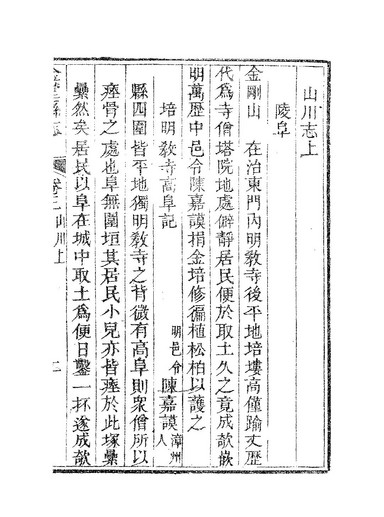 山川志上
陵阜
金剛山 在治東門內明敎寺後平地培塿高僅踰丈歷
代爲寺僧塔院地處僻靜居民便於取土久之竟成欹嵌
明萬歷中邑令陳嘉謨捐金培修徧植松柏以護之
培明敎寺高阜記 明邑令陳嘉謨漳州人
縣四圍皆平地獨明敎寺之背微有高阜則衆僧所以
瘞骨之處也阜無圍垣其居民小兒亦皆瘞於此塚纍
纍然矣居民以阜在城中取土爲便日鑿一抔遂成欹
卷三 山川上